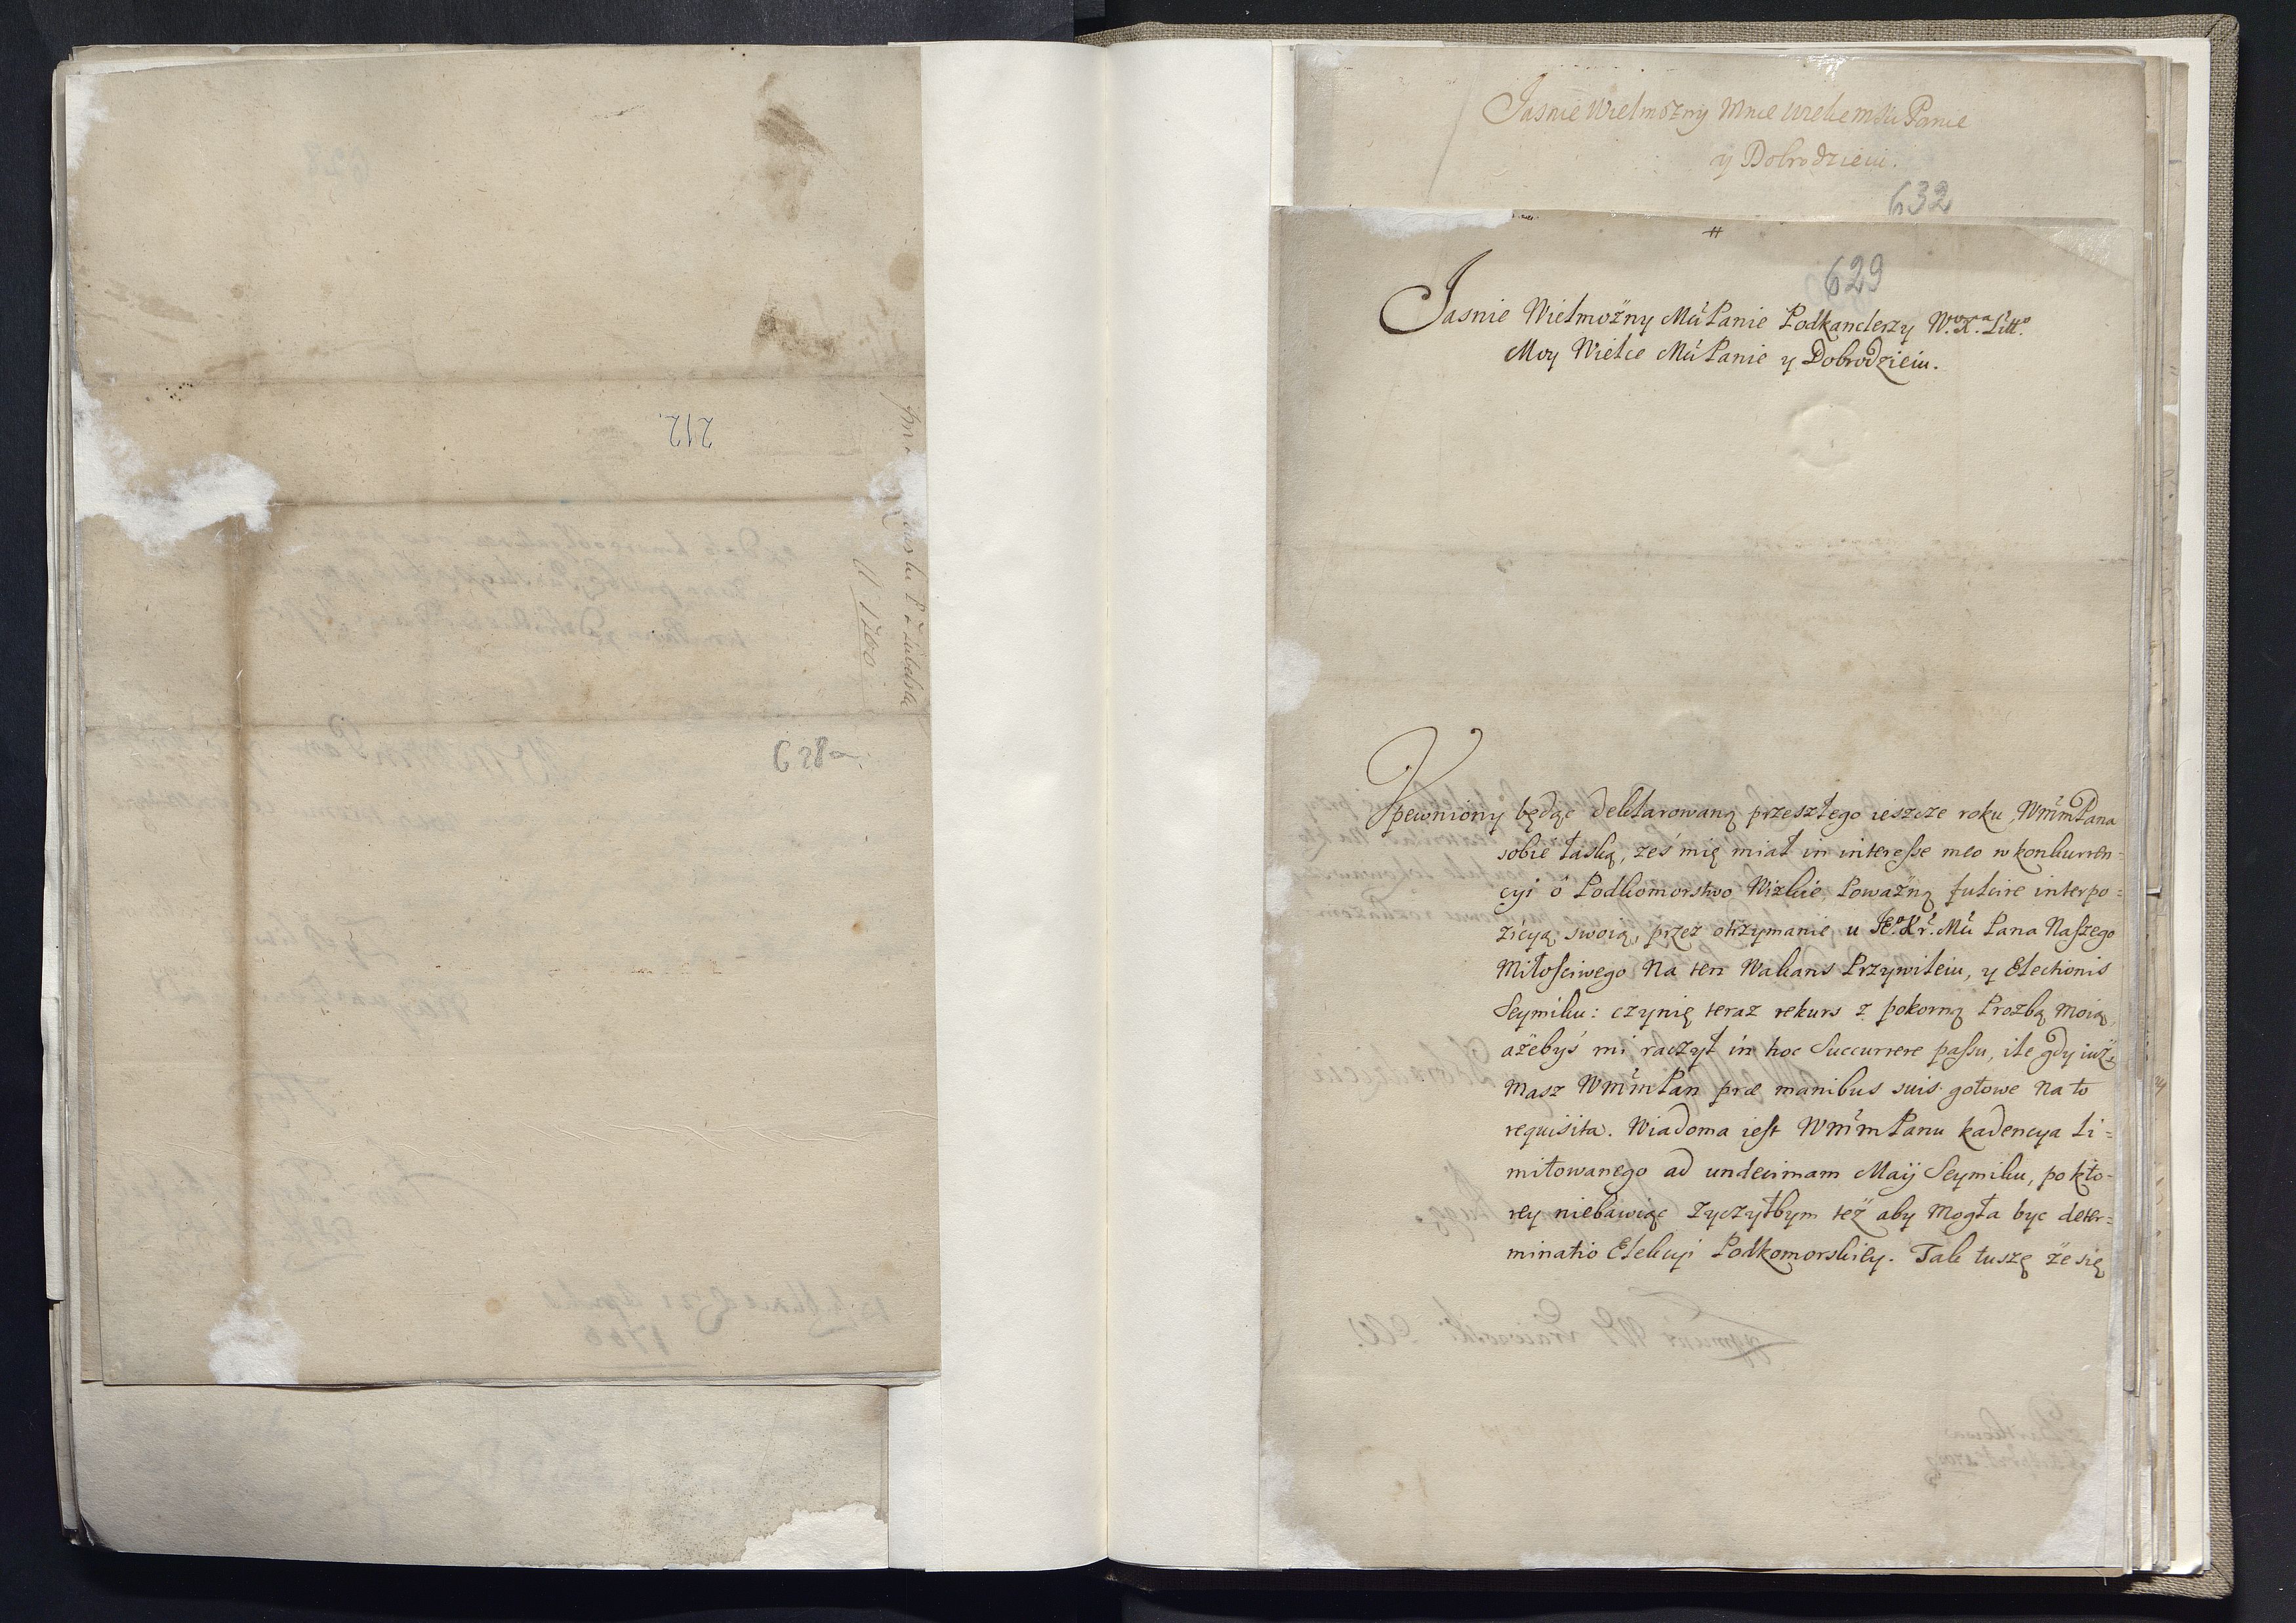 212.
A 1700
628a
Jasnie Wielmożny Mnie Wielce mśći Panie
y Dobrodzieiu.
632
#
629
Jasnie Wielmożny Mći Panie Podkanclerzy W.º X.ª Litt.º
Moy Wielce Mći Panie y Dobrodzieiu.
Vpewniony będąc deklarowaną przeszłego ieszcze roku, WmmPana
sobie łaską, żeś mię miał in interesse meo w konkurren=
cyi o Podkomorstwo Wizkie, Poważną fulcire interpo=
zicyą swoią, przez otrzymanie u Jeº Kr. Mći Pana Naszego
Miłosciwego Na ten Wakans Przywileiu, y Electionis
Seymiku: czynię teraz rekurs z pokorną Prozbą moią,
ażebyś mi raczył in hoc Succurrere passu, ile gdy iuż
masz WmmPan præ manibus suis gotowe na to
requisita. Wiadoma iest WmmPanu kadencya li=
mitowanego ad undecimam Maij Seymiku, po kto=
rey niebawiąc zyczyłbym też aby mogła byc deter=
minatio Elekcyi Podkomorskiey. Tak tuszę że się